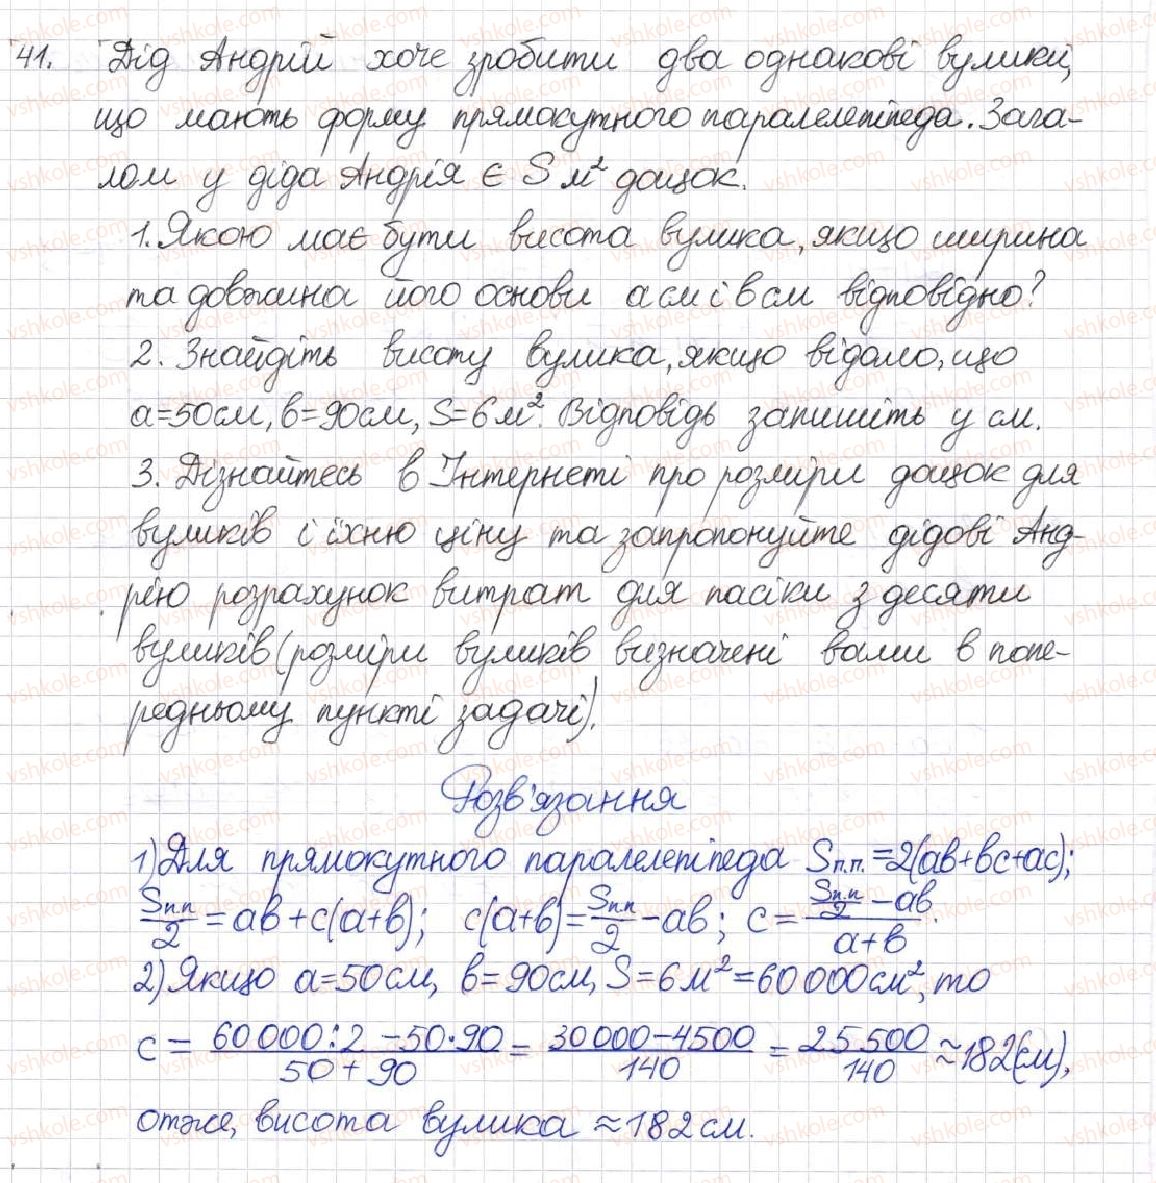 41. Дід Андрій хоче зробити два однакові вулики,
що мають форму прямокутного паралелепіпеда. Зага-
лом у діда Андрія є S м² дощок.
1. Якою має бути висота вулика, якщо ширина
та довжина його основи a см і b см відповідно?
2. Знайдіть висоту вулика, якщо відомо, що
a=50см, b=90см, S=6м². Відповідь запишіть у см.
3. Дізнайтесь в Інтернеті про розміри дощок для
вуликів і їхню ціну та запропонуйте дідові Анд-
рію розрахунок витрат для пасіки з десяти
вуликів (розміри вуликів визначені вами в попе-
редньому пункті задачі).
Розв'язання
1) Для прямокутного паралелепіпеда Sп.п.=2(ab+bc+ac);
Sп.п/2 = ab+c(a+b); c(a+b)=Sп.п/2 - ab; c = (Sп.п/2 - ab)/(a+b).
2) Якщо a=50см, b=90см, S=6м²=60000см², то
c = (60000:2 - 50·90)/(50+90) = (30000-4500)/140 = 25500/140 ≈ 182(см),
отже, висота вулика ≈ 182 см.